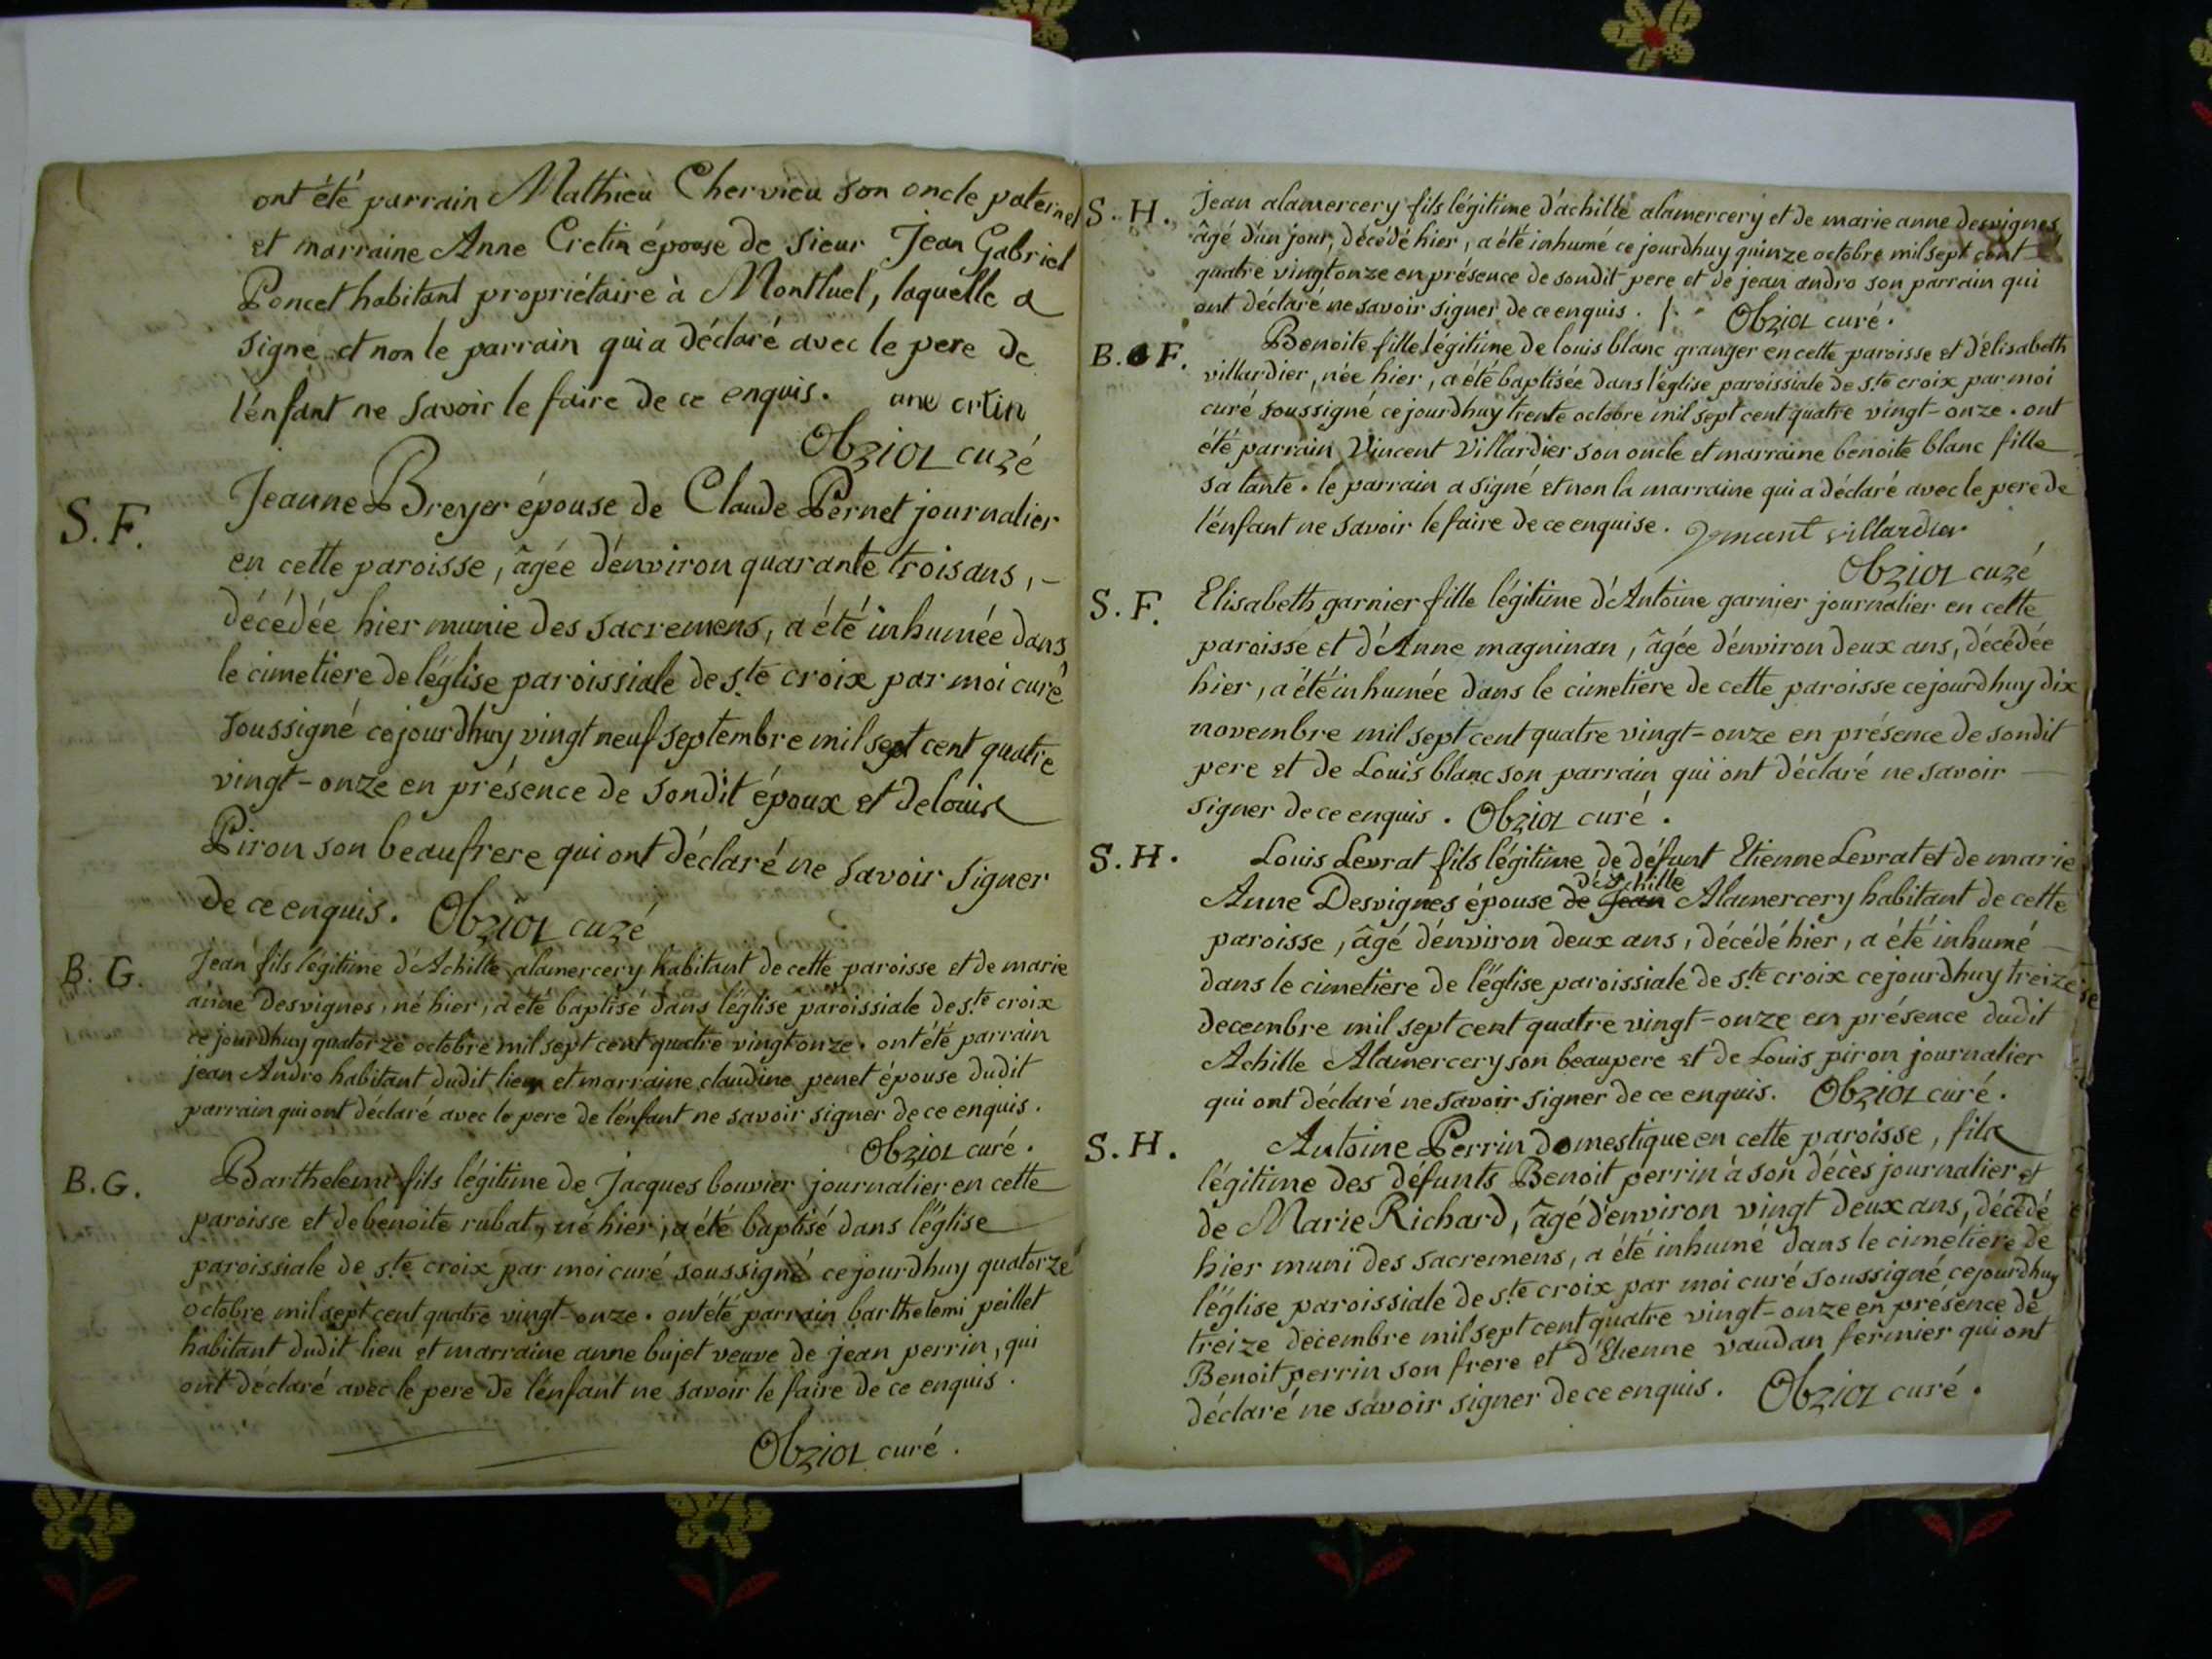 ont été parrain Mathieu Chervieu son oncle paternel
et marraine Anne Cretin épouse de sieur Jean Gabriel
Poncet habitant propriétaire à Montluel, laquelle a
signé et non le parrain qui a déclaré avec le pere de
l'énfant ne savoir le faire de ce enquis. ane crtin
Obziol curé
S. F. Jeanne Breyer épouse de Claude Pernet journalier
en cette paroisse, âgée d'énviron quarante trois ans, -
décédée hier munie des sacremens, a été inhumée dans
le cimetiere de l'église paroissiale de ste croix par moi curé
soussigné cejourdhuy vingt neuf septembre mil sept cent quatre
vingt-onze en présence de sondit époux et de louis
Piron son beaufrere qui ont déclaré ne savoir signer
de ce enquis. Obziol curé
B. G. Jean fils légitime d'Achille alamercery habitant de cette paroisse et de marie
anne Desvignes, né hier, a été baptisé dans l'église paroissiale de ste croix
cejourdhuy quatorze octobre mil sept cent quatre vingt onze. ont été parrain
jean Andro habitant dudit lieu et marraine claudine penet épouse dudit
parrain qui ont déclaré avec le pere de l'énfant ne savoir signer de ce enquis.
Obziol curé.
B. G. Barthelemi fils légitime de Jacques bouvier journalier en cette
paroisse et de benoite rubat, né hier, a été baptisé dans l'église
paroissiale de ste croix par moi curé soussigné cejourdhuy quatorze
octobre mil sept cent quatre vingt-onze. ont été parrain barthelemi peillet
habitant dudit lieu et marraine anne bujet veuve de jean perrin, qui
ont déclaré avec le pere de l'énfant ne savoir le faire de ce enquis.
Obziol curé.
S. H. Jean alamercery fils légitime d'achille alamercery et de marie anne desvignes
âgé d'un jour, décédé hier, a été inhumé ce jourdhuy quinze octobre mil sept cent
quatre vingt onze en présence de sondit pere et de jean andro son parrain qui
ont déclaré ne savoir signer de ce enquis. Obziol curé.
B. F. Benoite fille légitime de louis blanc granger en cette paroisse et d'élisabeth
villardier, née hier, a été baptisée dans l'église paroissiale de ste croix par moi
curé soussigné cejourdhuy trente octobre mil sept cent quatre vingt-onze. ont
été parrain Vincent Villardier son oncle et marraine benoite blanc fille
sa tante. le parrain a signé et non la marraine qui a déclaré avec le pere de
l'énfant ne savoir le faire de ce enquise. Vincent villardier
Obziol curé
S. F. Elisabeth garnier fille légitime d'Antoine garnier journalier en cette
paroisse et d'Anne magninan, âgée d'énviron deux ans, décédée
hier, a été inhumée dans le cimetiere de cette paroisse cejourdhuy dix
novembre mil sept cent quatre vingt-onze en présence de sondit
pere et de Louis blanc son parrain qui ont déclaré ne savoir
signer de ce enquis. Obziol curé.
S. H. Louis Levrat fils légitime de défunt Etienne Levrat et de marie
d'Achille
Anne Desvignes épouse de Jean Alamercery habitant de cette
paroisse, âgé d'énviron deux ans, décédé hier, a été inhumé
dans le cimetiere de l'église paroissiale de ste croix cejourdhuy treize
decembre mil sept cent quatre vingt-onze en présence dudit
Achille Alamercery son beaupere et de Louis piron journalier
qui ont déclaré ne savoir signer de ce enquis. Obziol curé.
S. H. Antoine Perrin domestique en cette paroisse, fils
légitime des défunts Benoit perrin à son décès journalier et
de Marie Richard, âgé d'énviron vingt deux ans, décédé
hier muni des sacremens, a été inhumé dans le cimetiere de
l'église paroissiale de ste croix par moi curé soussigné, cejourdhuy
treize decembre mil sept cent quatre vingt-onze en présence de
Benoit perrin son frere et d'Etienne vaudan fermier qui ont
déclaré ne savoir signer de ce enquis. Obziol curé.